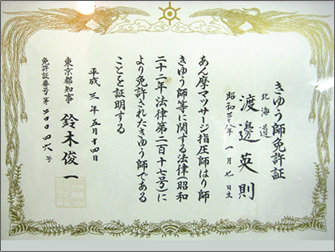 きゆう師免許証
北海道
渡邊英則
昭和三十八年一月七日生
あん摩マツサージ指圧師はり師
きゆう師等に関する法律(昭和
二十二年法律第二百十七号)に
より免許されたきゆう師である
ことを証明する
平成三年五月十四日
東京都知事 鈴木俊一
免許証番号第二〇〇四六号